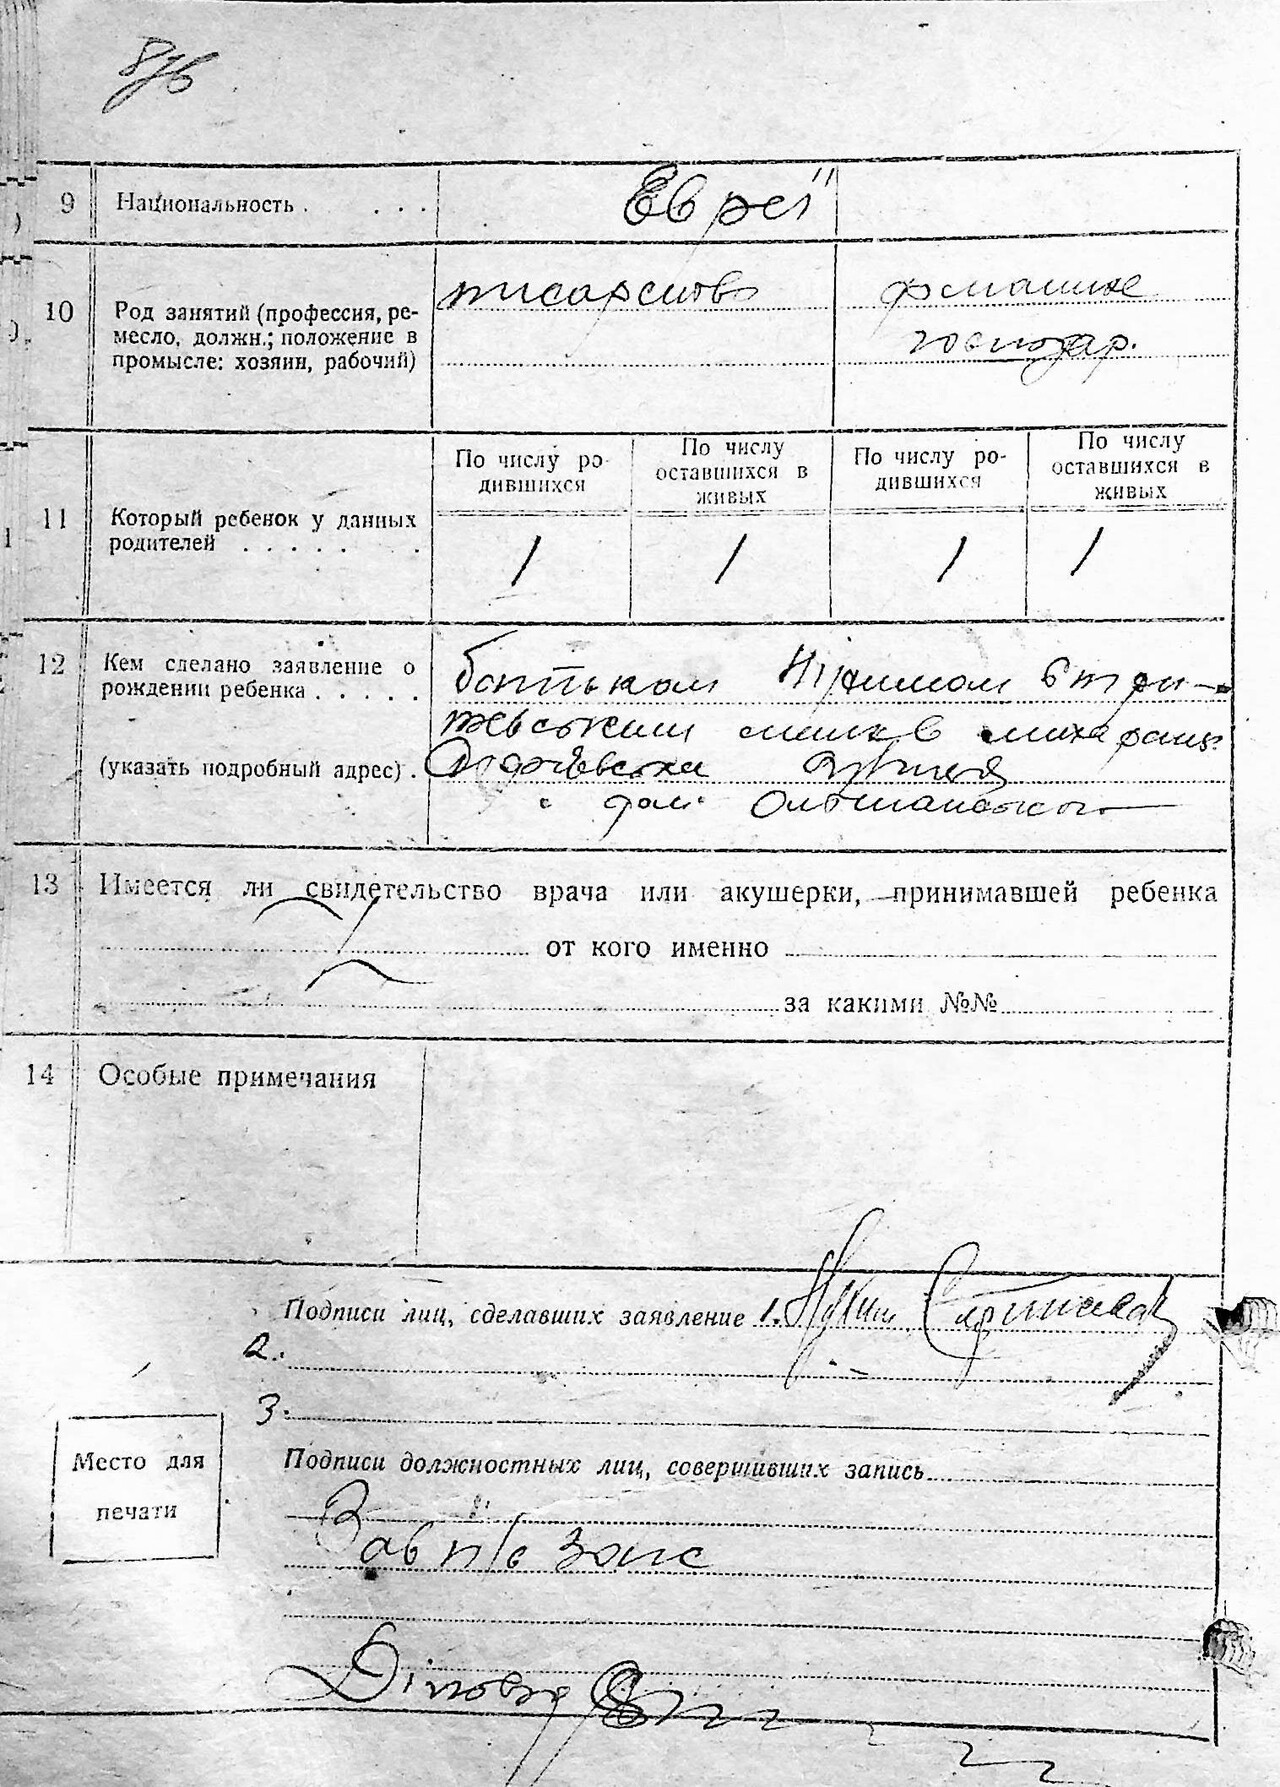 9 Национальность . . . . Евреї
10 Род занятий (профессия, ре-
месло, должн.; положение в
промысле: хозяин, рабочий)
писарство
домашнє
господар.
11 Который ребенок у данных
родителей . . . . . .
По числу ро-
дившихся
По числу
оставшихся в
живых
По числу ро-
дившихся
По числу
оставшихся в
живых
1 1 1 1
12 Кем сделано заявление о
рождении ребенка . . . . .
(указать подробный адрес) .
батьком
13 Имеется ли свидетельство врача или акушерки, принимавшей ребенка
от кого именно
за какими №№
14 Особые примечания
Подписи лиц, сделавших заявление 1.
2.
3.
Место для
печати
Подписи должностных лиц, совершивших запись
Зав п/в Загс